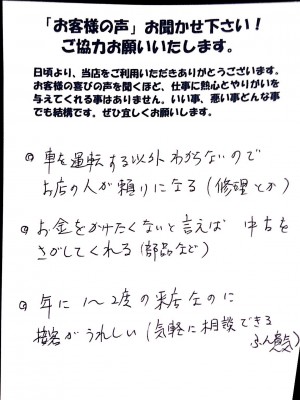 「お客様の声」お聞かせ下さい！
ご協力お願いいたします。
日頃より、当店をご利用いただきありがとうございます。
お客様の喜びの声を聞くほど、仕事に熱心とやりがいを
与えてくれる事はありません。いい事、悪い事どんな事
でも結構です。ぜひ宜しくお願いします。
◎ 車を運転する以外わからないので
お店の人が頼りになる（修理とか）
◎ お金をかけたくないと言えば 中古を
さがしてくれる（部品など）
◎ 年に1～2度の来店なのに
接客がうれしい（気軽に相談できる
ふん囲気）